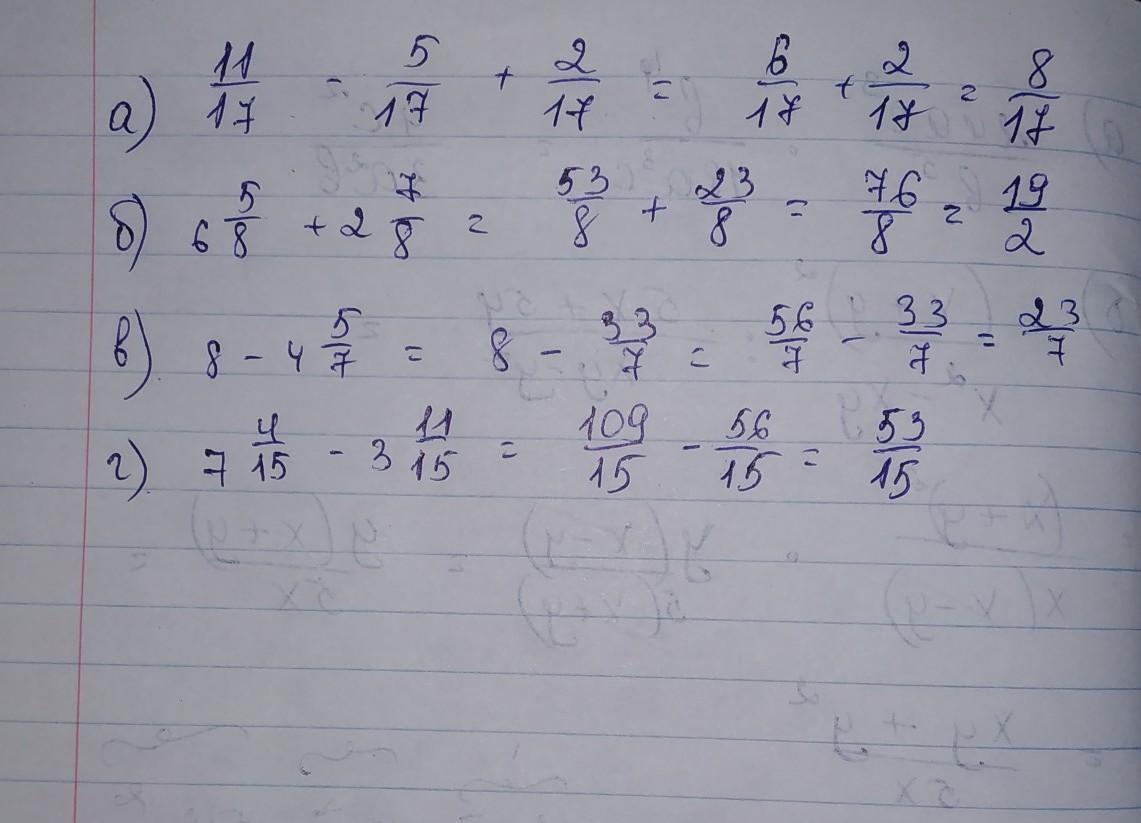 а) 11/17 = 5/17 + 2/17 = 6/17 + 2/17 = 8/17
б) 6 5/8 + 2 7/8 = 53/8 + 23/8 = 76/8 = 19/2
в) 8 - 4 5/7 = 8 - 33/7 = 56/7 - 33/7 = 23/7
г) 7 4/15 - 3 11/15 = 109/15 - 56/15 = 53/15